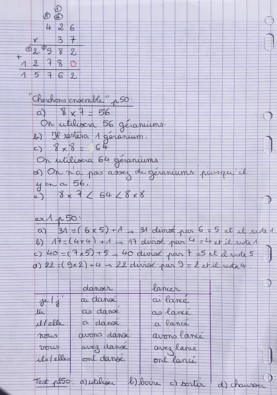 4 2 6
x 3 7
2 9 8 2
+ 1 2 7 8 0
1 5 7 6 2
"Cherchons ensemble" p50
a) 8 x 7 = 56
On utilisera 56 géraniums.
b) Il restera 1 géranium.
c) 8 x 8 = 64
On utilisera 64 géraniums
d) On n'a pas assez de géraniums puisqu'il
y en a 56.
e) 8 x 7 < 64 < 8 x 8
ex 1 p 50:
a) 31 = (6 x 5) + 1 → 31 divisé par 6 = 5 et il reste 1
b) 17 = (4 x 4) + 1 → 17 divisé par 4 = 4 et il reste 1
c) 40 = (7 x 5) + 5 → 40 divisé par 7 = 5 et il reste 5
d) 22 = (9 x 2) + 4 → 22 divisé par 9 = 2 et il reste 4
danser lancer
je/j' ai dansé ai lancé
tu as dansé as lancé
il/elle a dansé a lancé
nous avons dansé avons lancé
vous avez dansé avez lancé
ils/elles ont dansé ont lancé
Test p150: a) utiliser b) boire c) sortir d)